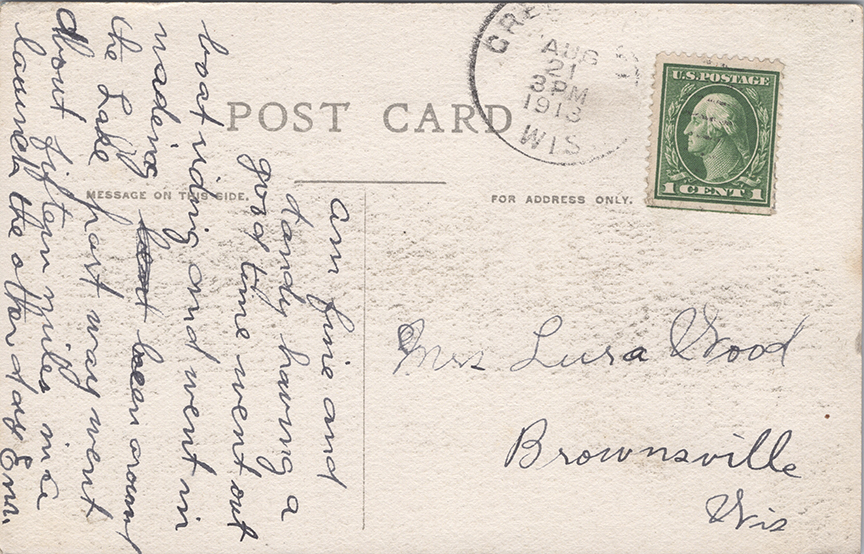 POST CARD
MESSAGE ON THIS SIDE.
FOR ADDRESS ONLY.
AUG
21
3 PM
1913
WIS
U.S. POSTAGE
1 CENT 1
am fine and
dandy having a
good time went out
boat riding and went in
wading been around
the Lake part way went
about fiften miles in a
launch the other day
Mrs Lura Wood
Brownsville
Wis